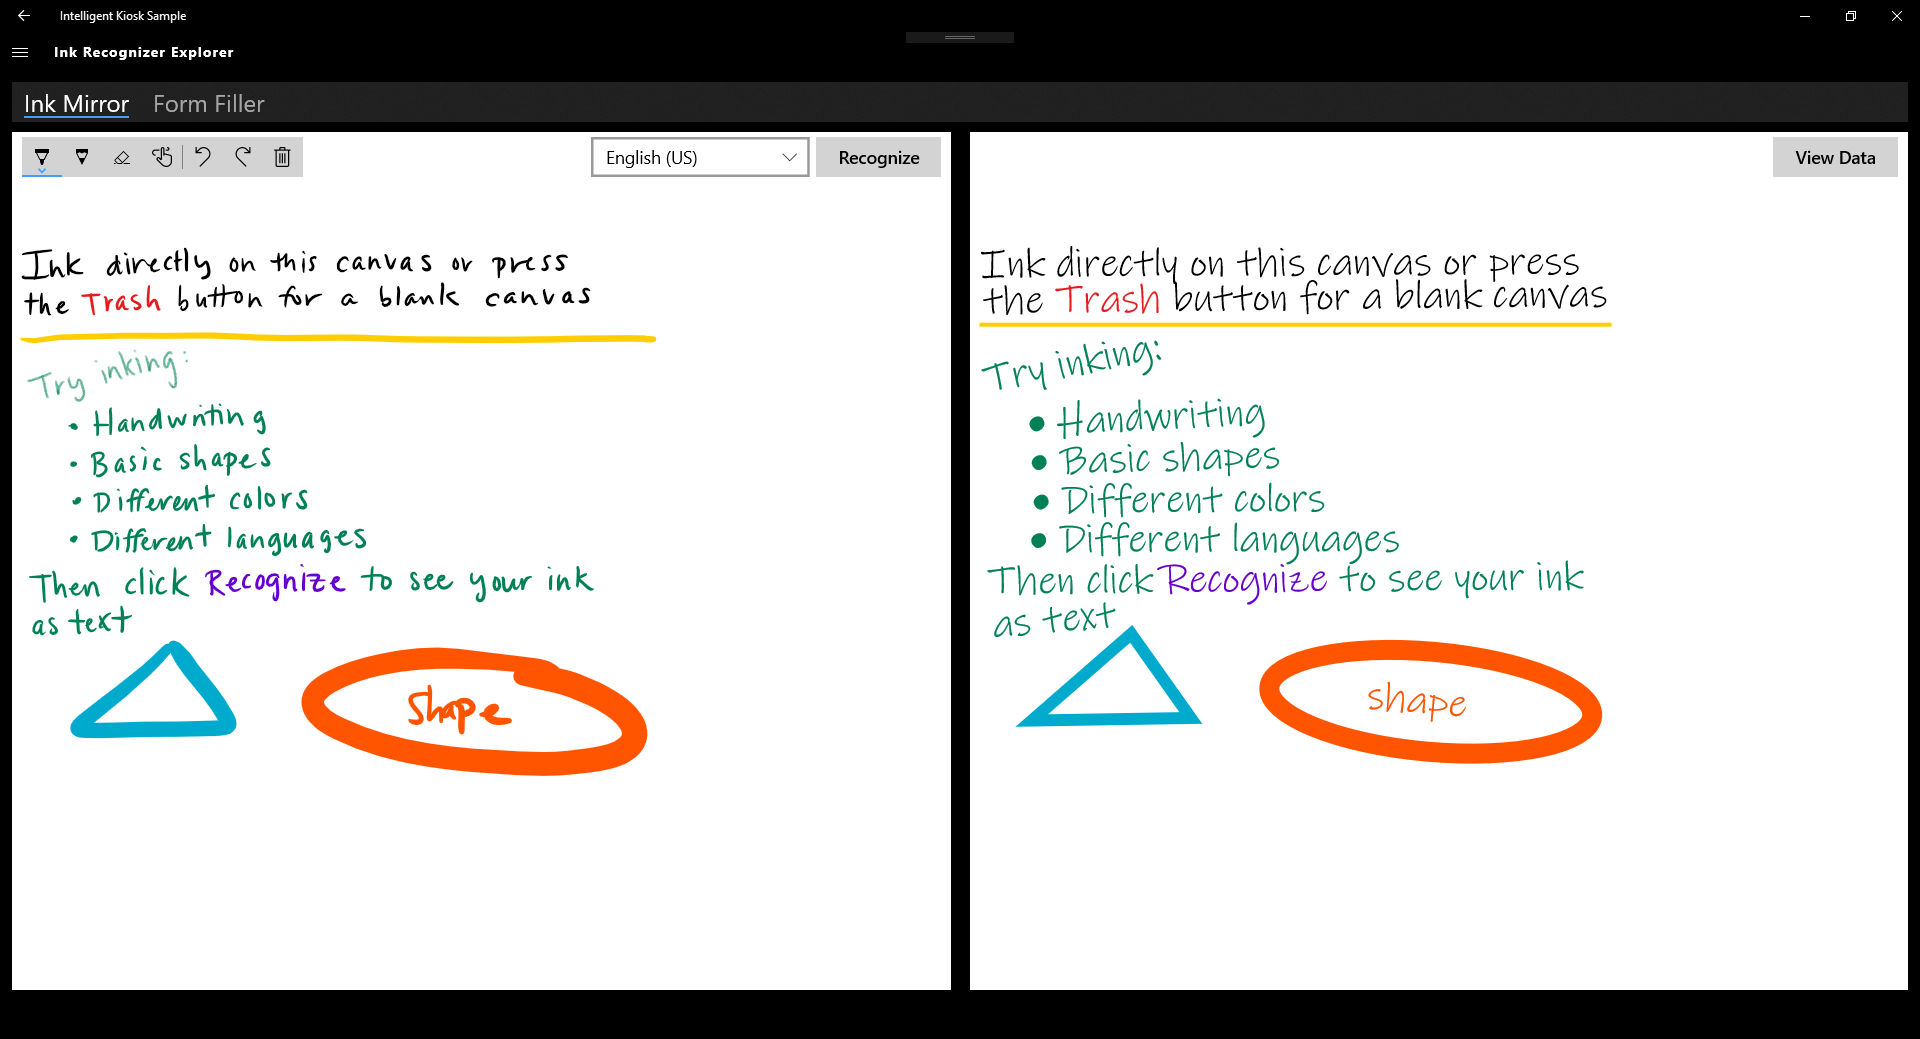 Intelligent Kiosk Sample
Ink Recognizer Explorer
Ink Mirror Form Filler
English (US) Recognize
Ink directly on this canvas or press
the Trash button for a blank canvas
Try inking:
• Handwriting
• Basic shapes
• Different colors
• Different languages
Then click Recognize to see your ink
as text
shape
View Data
Ink directly on this canvas or press
the Trash button for a blank canvas
Try inking:
• Handwriting
• Basic shapes
• Different colors
• Different languages
Then click Recognize to see your ink
as text
shape